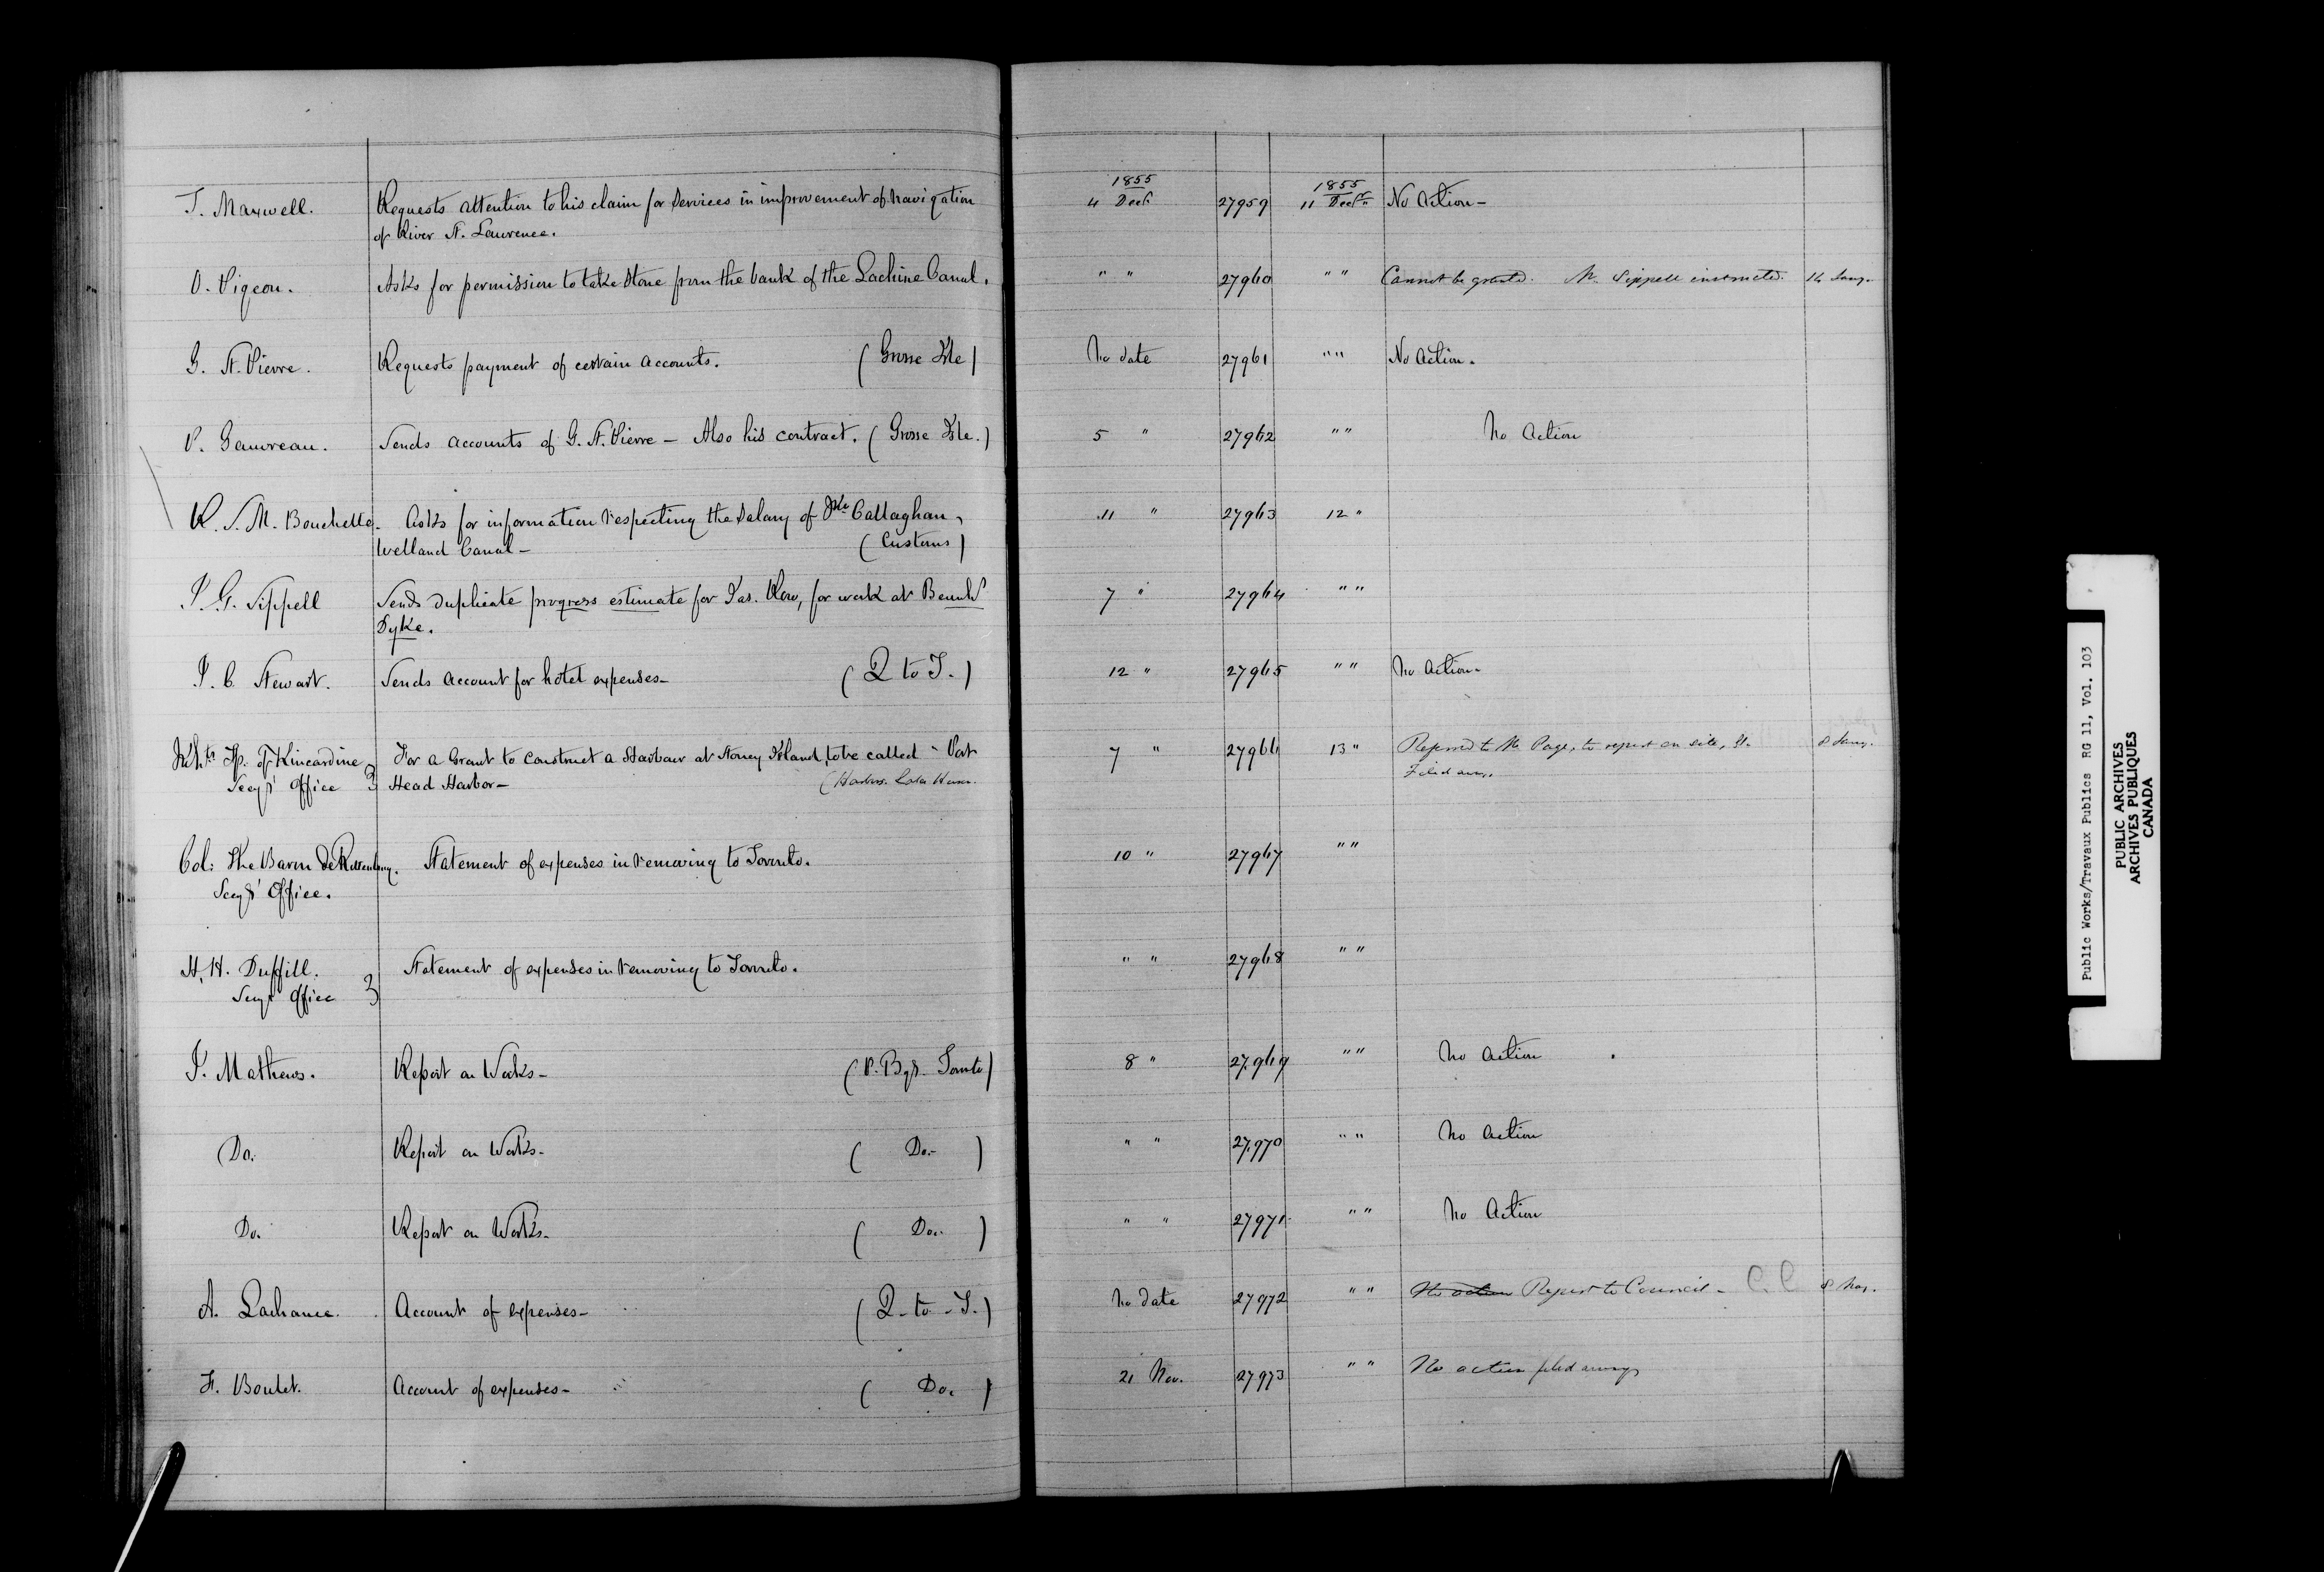 1855 1855
T. Maxwell. Requests attention to his claim for services in improvement of navigation 4 Decr. 27959 11 Decr. No Action -
of River St. Lawrence.
O. Pigeon. Asks for permission to take stone from the bank of the Lachine Canal. " " 27960 " " Cannot be granted. Mr. Sippell instructed. 14 Jany.
G. St. Pierre. Requests payment of certain accounts. (Grosse Isle) No date 27961 " " No Action.
P. Gauvreau. Sends accounts of G. St. Pierre - Also his contract. (Grosse Isle.) 5 " 27962 " " No Action
R. S. M. Bouchette. Asks for information respecting the salary of Callaghan, 11 " 27963 12 "
Welland Canal - (Customs)
J. G. Sippell Sends duplicate progress estimate for Jas. Row, for work at Beauhs
Dyke. 7 " 27964 " "
J. C. Stewart. Sends account for hotel expenses - (Q to T.) 12 " 27965 " " No Action -
Inhts Tp. of Kincardine For a Grant to construct a Harbour at Stoney Island, to be called " Port 7 " 27966 13 " Referred to Mr. Page, to report on site, &c. 8 Jany.
Secys' Office } Head Harbor - (Harbrs. Lake Huron. Filed away.
Col: The Baron de Rottenburg. Statement of expenses in removing to Toronto. 10 " 27967 " "
Secys' Office.
H. H. Duffill. Statement of expenses in removing to Toronto. " " 27968 " "
Secys' Office }
J. Mathews. Report on Works - (P. Bgs. Toronto) 8 " 27,969 " " No Action
Do. Report on Works - ( Do. - ) " " 27,970 " " No Action
Do. Report on Works - ( Do. ) " " 27971 " " No Action
A. Lachance. Account of expenses - (Q - to - T.) No date 27972 " " No action Report to Council - C. C 8 Nov.
F. Boulet. Account of expenses - ( Do. ) 21 Nov. 27973 " " No action filed away
Public Works/Travaux Publics RG 11, Vol. 103
PUBLIC ARCHIVES
ARCHIVES PUBLIQUES
CANADA